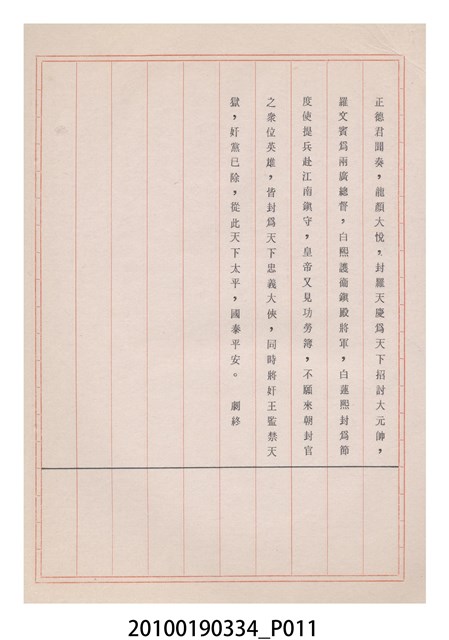 正德君聞奏，龍顏大悅，封羅天慶為天下招討大元帥，
羅文賓為兩廣總督，白熙護商鎮殿將軍，白蓮熙封為節
度使提兵赴江南鎮守，皇帝又見功勞簿，不願來朝封官
之眾位英雄，皆封為天下忠義大俠，同時將奸王監禁天
獄，奸黨已除，從此天下太平，國泰平安。　劇終
20100190334_P011